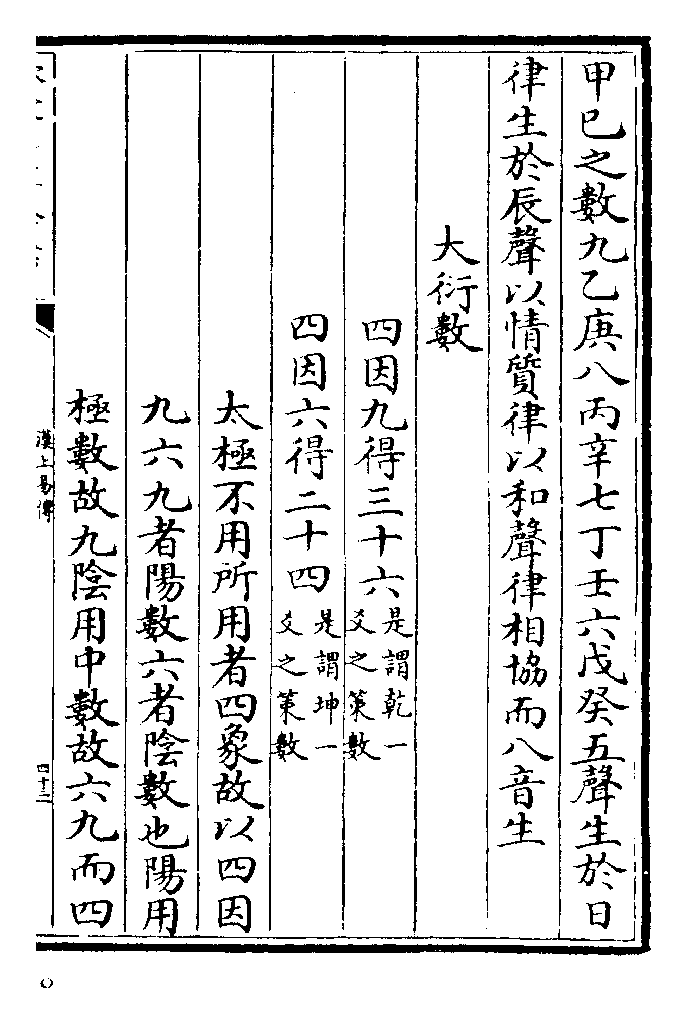 甲巳之數九乙庚八丙辛七丁壬六戊癸五聲生於日
律生於辰聲以情質律以和聲律相協而八音生
大衍數
四因九得三十六是謂乾一爻之策數
四因六得二十四是謂坤一爻之策數
太極不用所用者四象故以四因
九六九者陽數六者陰數也陽用
極數故九陰用中數故六九而四
漢上易傳
四十三